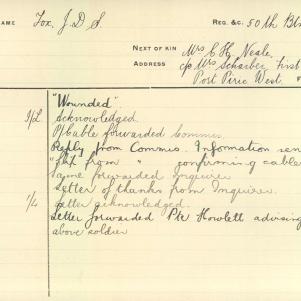 NAME Fox, J. D. S. REG. &C. 50th Btn
NEXT OF KIN Mrs C. H. Neale,
ADDRESS c/o Mrs Scharber, First
Port Pirie West.
"Wounded."
Acknowledged.
Cable forwarded Commis.
Reply from Commis. Information sen
from " confirming cable
Same forwarded Inquirer
Letter of thanks from Inquirer.
1/4 Letter acknowledged.
Letter forwarded Pte Howlett advising
above soldier